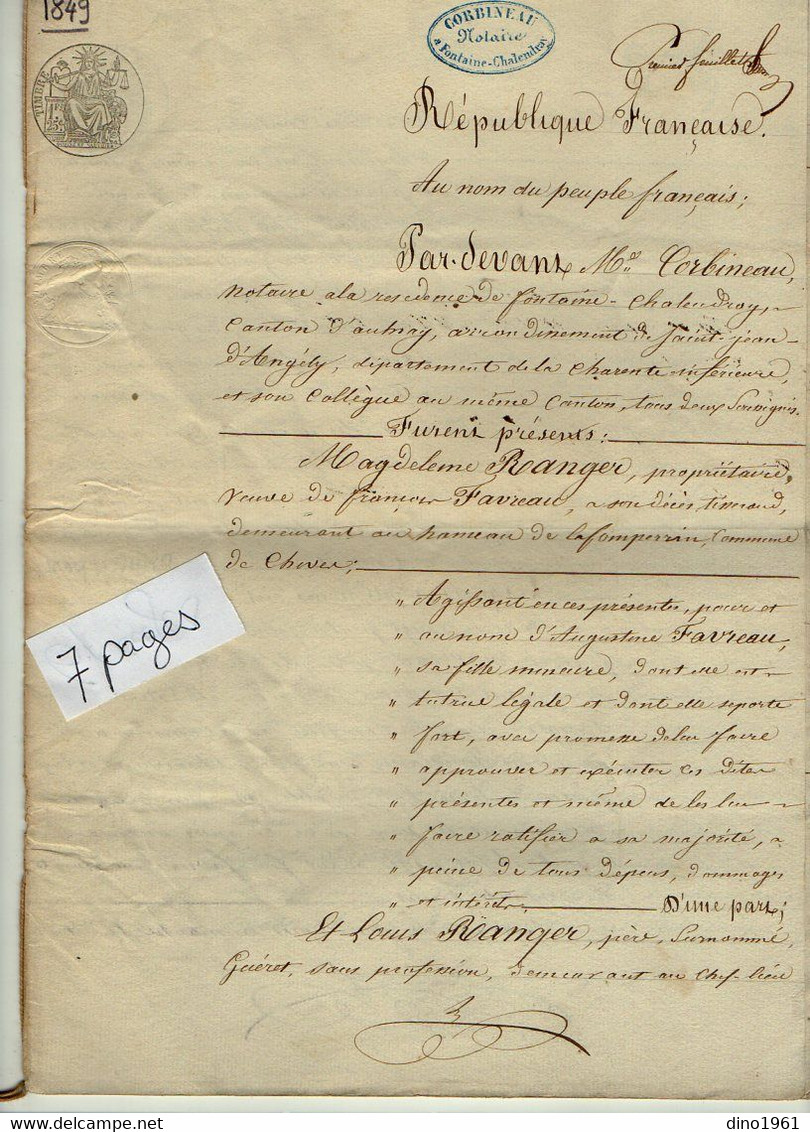 1849
CORBINEAU
Notaire
a Fontaine-Chalendray
Premier feuillet
TIMBRE
1F
25c
République Française.
Au nom du peuple français;
Par-devant Me Corbineau,
notaire a la residence de fontaine-chalendray,
Canton d'aulnay, arrondinement de Saint-jean-
d'Angély, département de la charente inférieure,
et son Collègue au même Canton, tous deux Soussignés.
Furent présents:
Magdeleine Ranger, propriétaire,
veuve de françois Favreau, a son décès tisserand,
demeurant au hameau de la fomperrin, commune
de Chives;
" Agissant en ces présentes, pour et
" au nom d'Augustine Favreau,
" sa fille mineure, dont elle est
" tutrice légale et dont elle seporte
" fort, avec promesse de leur faire
" approuver et exécuter ces dites
" présentes et même de les lui
" faire ratifier a sa majorité, a
" peine de tous dépens, dommages
" et intérêts; D'une part;
Et Louis Ranger, père, Surnommé,
Guéret, sans profession, demeurant au Chef-lieu
7 pages
dino1961